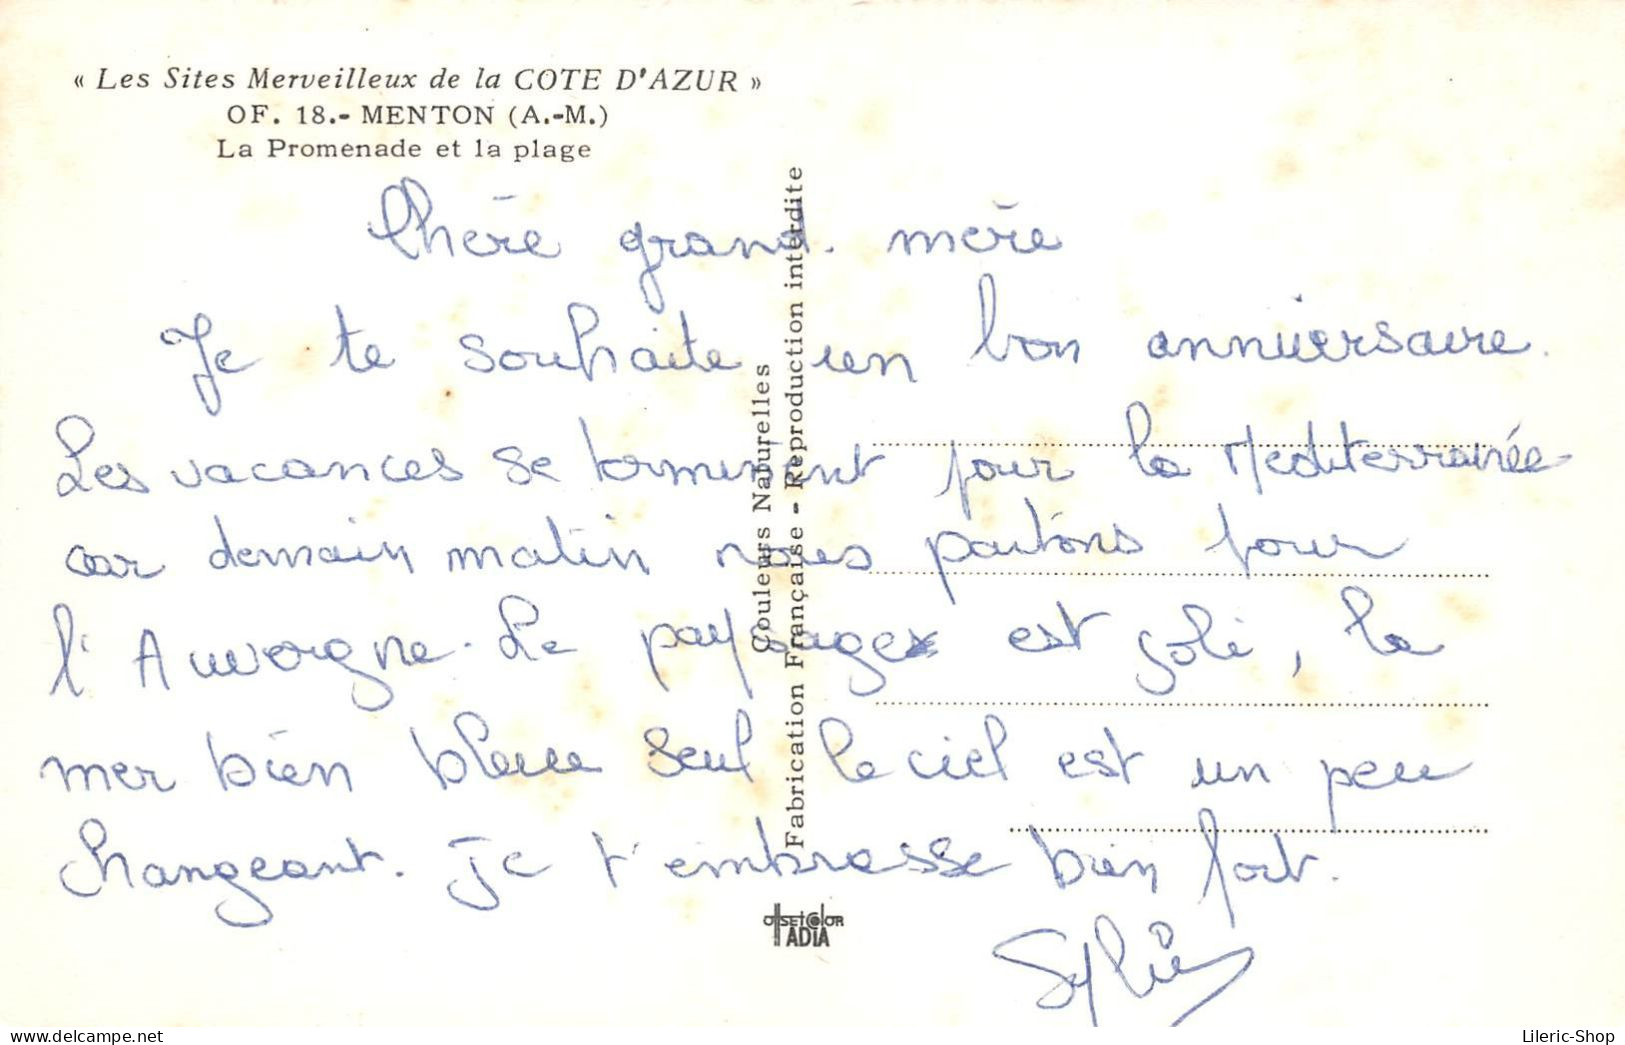 « Les Sites Merveilleux de la COTE D'AZUR »
OF. 18.- MENTON (A.-M.)
La Promenade et la plage
Chère grand-mère
Je te souhaite un bon anniversaire.
Les vacances se terminent pour la Mediterranée
car demain matin nous partons pour
l'Auvergne. Le paysage est joli, la
mer bien bleue seul le ciel est un peu
changeant. Je t'embrasse bien fort.
Sylvie
Couleurs Naturelles
Fabrication Française - Reproduction interdite
OffSEtCOlOR
ADIA
Lileric-Shop
www.delcampe.net